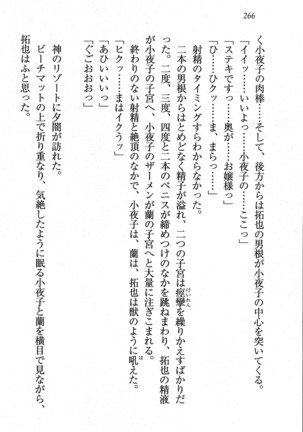 266
く小夜子の肉棒……そして、後方からは拓也の男根が小夜子の中心を突いてくる。
「イイッ……いいよっ……小夜子の……ここっ」
「ステキですっ……奥が……お嬢様っ」
「ひ……ひクっ……ま、まらっ……」
射精のタイミングすらわからなかった。
二本の男根からはとめどなく精子が溢れ、二つの子宮は痙攣を繰りかえすばかりだ
った。二度、三度、四度と二本のペニスが締めつけのなかを跳ねまわり、拓也の精液
が小夜子の子宮へ、小夜子のザーメンが蘭の子宮へと大量に注ぎこまれる。
終わりのない射精と絶頂のなかで、小夜子は、蘭は、拓也は獣のように吼えた。
「ヒクッ……まはイクうッ」
「あひいいっ」
「ぐごおおおっ」
神のリゾートに夕闇が訪れた。
ビーチマットの上で折り重なり、気絶したように眠る小夜子と蘭を横目で見ながら、
拓也はふと思った。